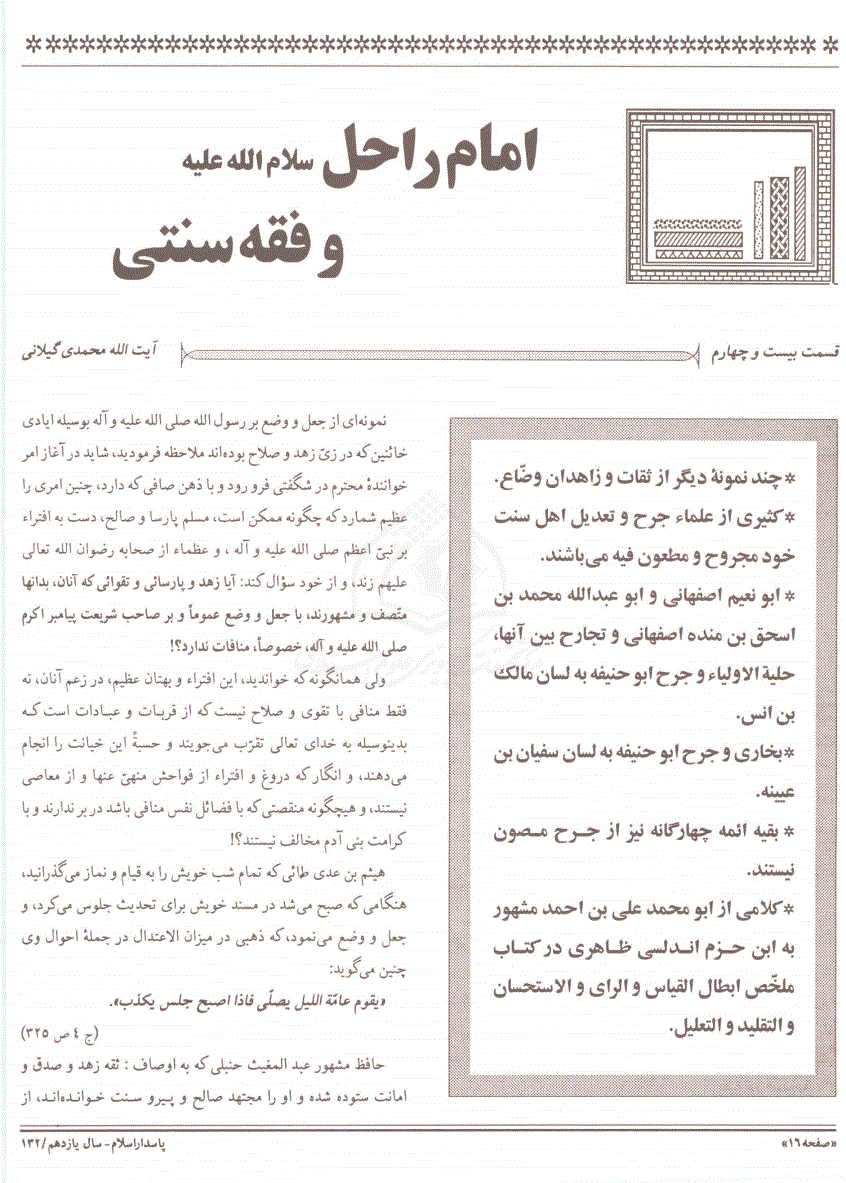 امام راحل سلام الله علیه
و فقه سنتی
قسمت بیست و چهارم
آیت الله محمدی گیلانی
* چند نمونهٔ دیگر از ثقات و زاهدان وضّاع.
* کثیری از علماء جرح و تعدیل اهل سنت
خود مجروح و مطعون فیه می‌باشند.
* ابو نعیم اصفهانی و ابو عبدالله محمد بن
اسحق بن منده اصفهانی و تجارح بین آنها،
حلیة الاولیاء و جرح ابو حنیفه به لسان مالک
بن انس.
* بخاری و جرح ابو حنیفه به لسان سفیان بن
عیینه.
* بقیه ائمه چهارگانه نیز از جرح مصون
نیستند.
* کلامی از ابو محمد علی بن احمد مشهور
به ابن حزم اندلسی ظاهری در کتاب
ملخّص ابطال القیاس و الرای و الاستحسان
و التقلید و التعلیل.
نمونه‌ای از جعل و وضع بر رسول الله صلی الله علیه و آله بوسیله ایادی
خائنین که در زیّ زهد و صلاح بوده‌اند ملاحظه فرمودید، شاید در آغاز امر
خوانندهٔ محترم در شگفتی فرو رود و با ذهن صافی که دارد، چنین امری را
عظیم شمارد که چگونه ممکن است، مسلم پارسا و صالح، دست به افتراء
بر نبیّ اعظم صلی الله علیه و آله ، و عظماء از صحابه رضوان الله تعالی
علیهم زند، و از خود سؤال کند: آیا زهد و پارسائی و تقوائی که آنان، بدانها
متّصف و مشهورند، با جعل و وضع عموماً و بر صاحب شریعت پیامبر اکرم
صلی الله علیه و آله، خصوصاً، منافات ندارد؟!
ولی همانگونه که خواندید، این افتراء و بهتان عظیم، در زعم آنان، نه
فقط منافی با تقوی و صلاح نیست که از قربات و عبادات است که
بدینوسیله به خدای تعالی تقرّب می‌جویند و حسبةً این خیانت را انجام
می‌دهند، و انگار که دروغ و افتراء از فواحش منهیّ عنها و از معاصی
نیستند، و هیچگونه منقصتی که با فضائل نفس منافی باشد در بر ندارند و با
کرامت بنی آدم مخالف نیستند؟!
هیثم بن عدی طائی که تمام شب خویش را به قیام و نماز می‌گذرانید،
هنگامی که صبح می‌شد در مسند خویش برای تحدیث جلوس می‌کرد، و
جعل و وضع می‌نمود، که ذهبی در میزان الاعتدال در جملهٔ احوال وی
چنین می‌گوید:
«یقوم عامّة اللیل یصلّی فاذا اصبح جلس یکذب».
(ج ٤ ص ٣٢٥)
حافظ مشهور عبد المغیث حنبلی که به اوصاف : ثقه زهد و صدق و
امانت ستوده شده و او را مجتهد صالح و پیرو سنت خوانده‌اند، از
«صفحه ١٦»
پاسدار اسلام - سال یازدهم/١٣٢